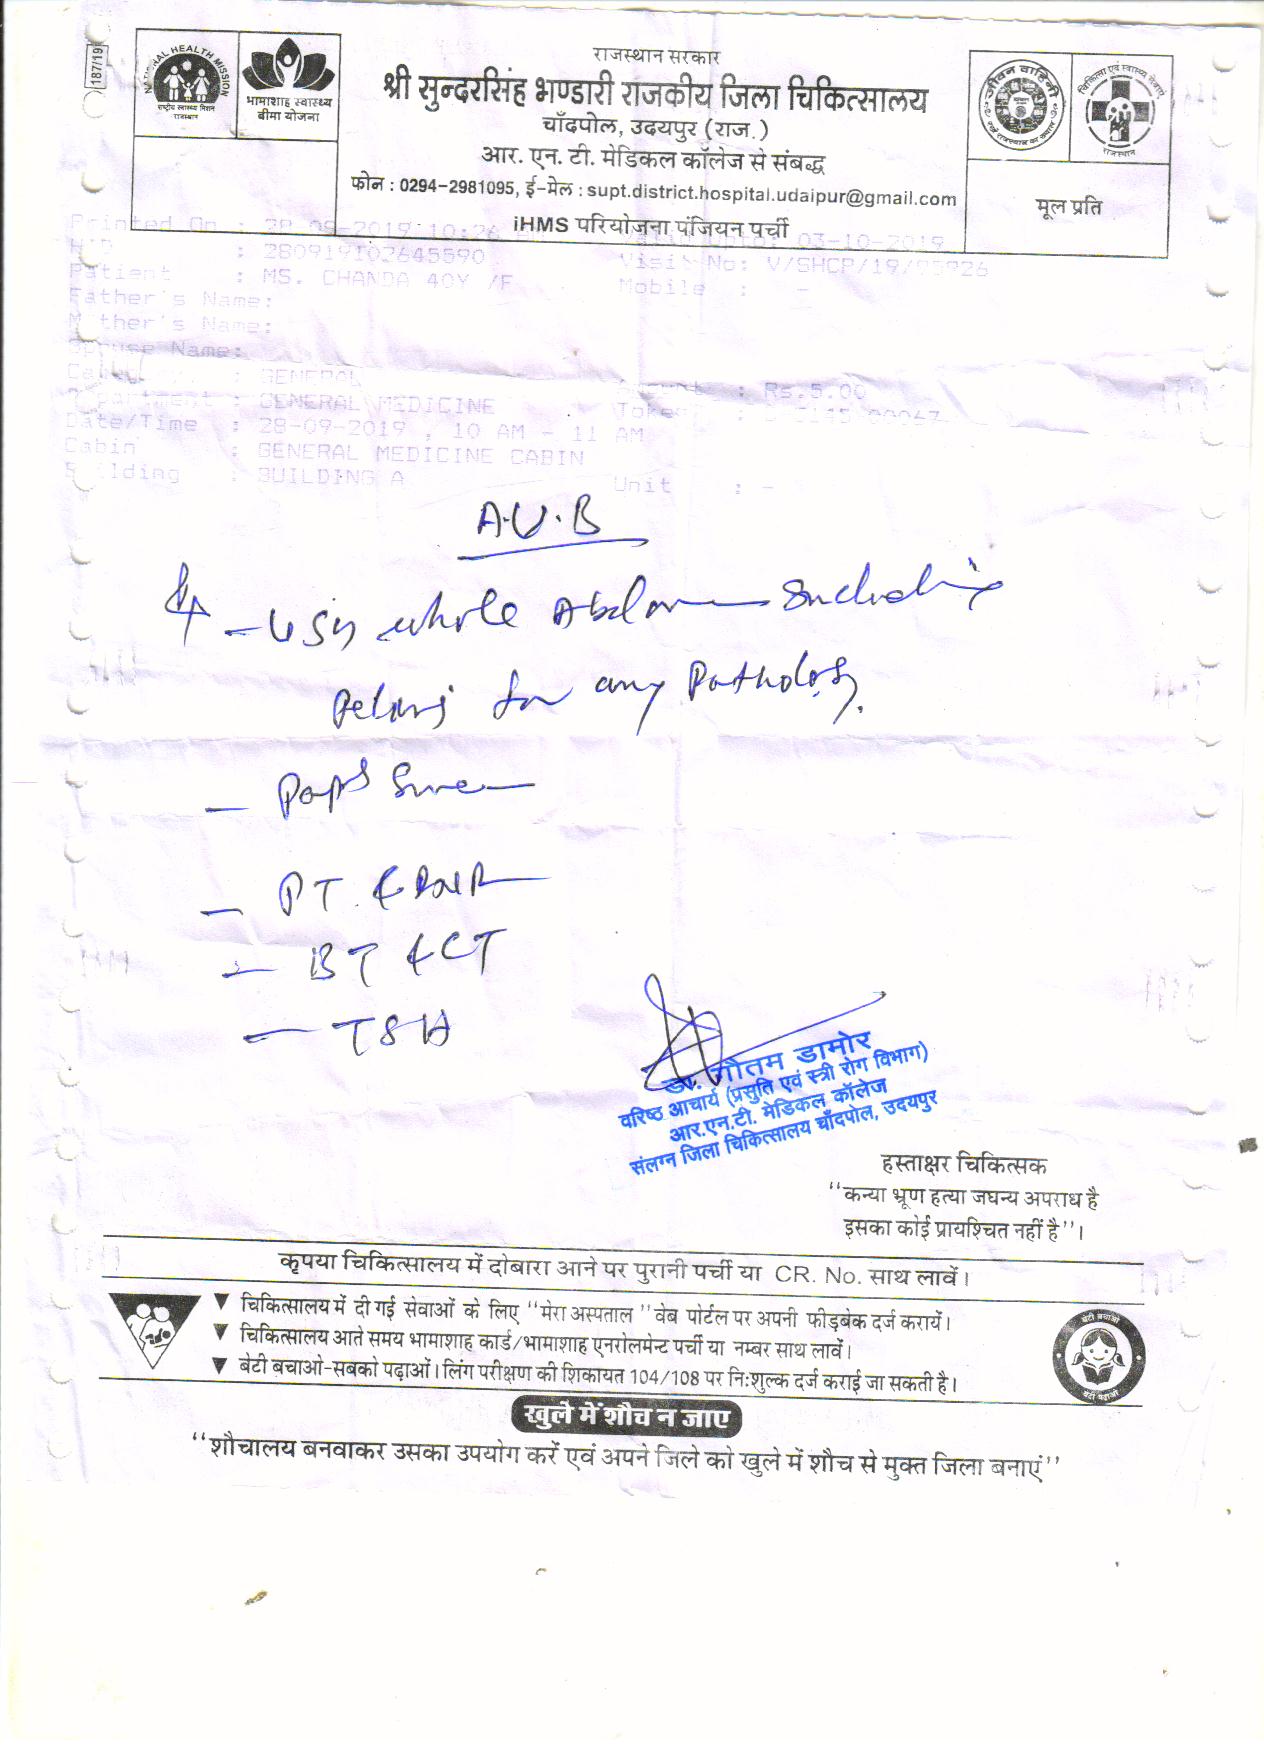 187/19
NATIONAL HEALTH MISSION
राष्ट्रीय स्वास्थ्य मिशन
राजस्थान
भामाशाह स्वास्थ्य
बीमा योजना
राजस्थान सरकार
श्री सुन्दरसिंह भण्डारी राजकीय जिला चिकित्सालय
चाँदपोल, उदयपुर (राज.)
आर. एन. टी. मेडिकल कॉलेज से संबद्ध
फोन : 0294-2981095, ई-मेल : supt.district.hospital.udaipur@gmail.com
iHMS परियोजना पंजियन पर्ची
जीवन वाहिनी
चिकित्सा एवं स्वास्थ्य सेवाएं
राजस्थान
मूल प्रति
Printed On : 28-09-2019 10:26 03-10-2019
: 280919102645590 Visit No: V/SHCP/19/
Patient : MS. CHANDA 40Y /F Mobile : -
Father's Name:
Mother's Name:
Spouse Name:
: GENERAL : Rs.5.00
Department : GENERAL MEDICINE Token
Date/Time : 28-09-2019 , 10 AM - 11 AM
Cabin : GENERAL MEDICINE CABIN
Building : BUILDING A Unit : -
A.U.B
- USG whole Abdomen including
Pelvis for any Pathology.
- Pap's Smear
- PT. &
- BT & CT
- TSH
डॉ. गौतम डामोर
वरिष्ठ आचार्य (प्रसुति एवं स्त्री रोग विभाग)
आर.एन.टी. मेडिकल कॉलेज
संलग्न जिला चिकित्सालय चाँदपोल, उदयपुर
हस्ताक्षर चिकित्सक
‘‘कन्या भ्रूण हत्या जघन्य अपराध है
इसका कोई प्रायश्चित नहीं है’’।
कृपया चिकित्सालय में दोबारा आने पर पुरानी पर्ची या CR. No. साथ लावें।
▼ चिकित्सालय में दी गई सेवाओं के लिए ‘‘मेरा अस्पताल’’ वेब पोर्टल पर अपनी फीड़बेक दर्ज करायें।
▼ चिकित्सालय आते समय भामाशाह कार्ड/भामाशाह एनरोलमेन्ट पर्ची या नम्बर साथ लावें।
▼ बेटी बचाओ-सबको पढ़ाओं। लिंग परीक्षण की शिकायत 104/108 पर निःशुल्क दर्ज कराई जा सकती है।
बेटी बचाओ
बेटी पढ़ाओ
खुले में शौच न जाए
‘‘शौचालय बनवाकर उसका उपयोग करें एवं अपने जिले को खुले में शौच से मुक्त जिला बनाएं’’